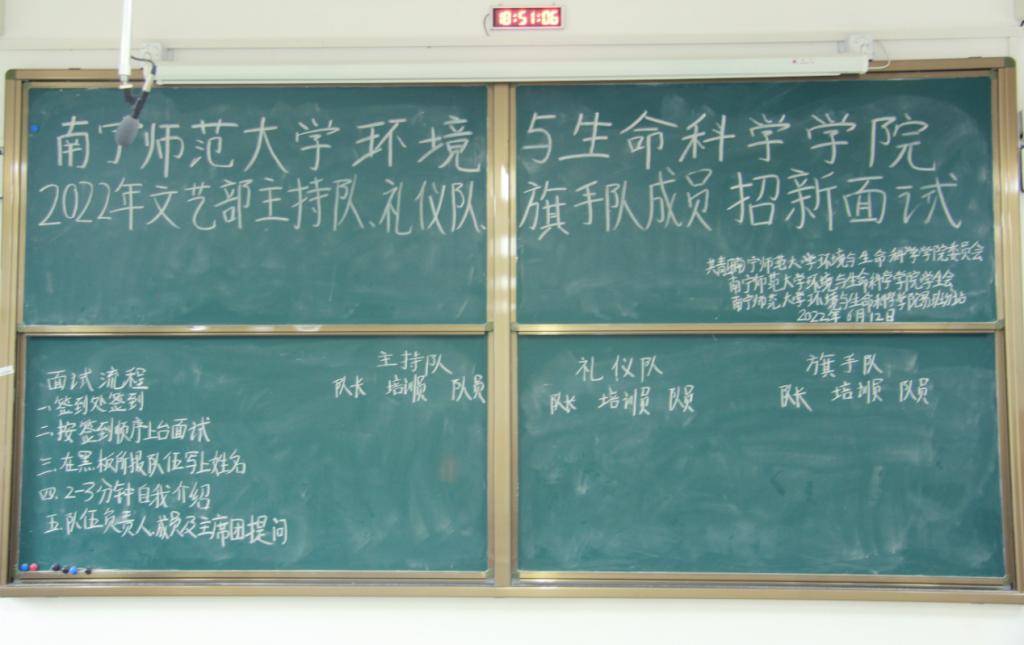 18:51:06
南宁师范大学环境与生命科学学院
2022年文艺部主持队、礼仪队、旗手队成员招新面试
共青团南宁师范大学环境与生命科学学院委员会
南宁师范大学环境与生命科学学院学生会
南宁师范大学环境与生命科学学院
2022年6月12日
面试流程
一、签到处签到
二、按签到顺序上台面试
三、在黑板所报队伍写上姓名
四、2-3分钟自我介绍
五、队伍负责人、成员及主席团提问
主持队
队长 培训员 队员
礼仪队
队长 培训员 队员
旗手队
队长 培训员 队员